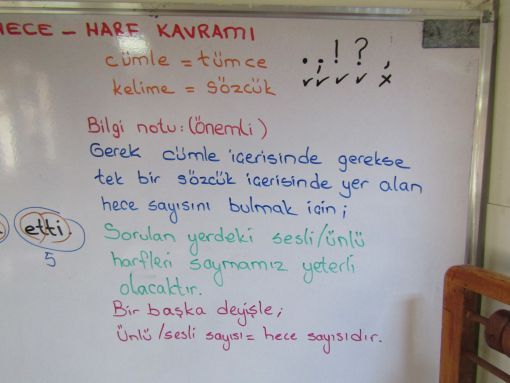 HECE - HARF KAVRAMI
cümle = tümce
kelime = sözcük
. ; ! ? ,
✓ ✓ ✓ ✓ x
Bilgi notu: (Önemli)
Gerek cümle içerisinde gerekse
tek bir sözcük içerisinde yer alan
hece sayısını bulmak için;
etti.
5
Sorulan yerdeki sesli/ünlü
harfleri saymamız yeterli
olacaktır.
Bir başka deyişle;
Ünlü/sesli sayısı = hece sayısıdır.